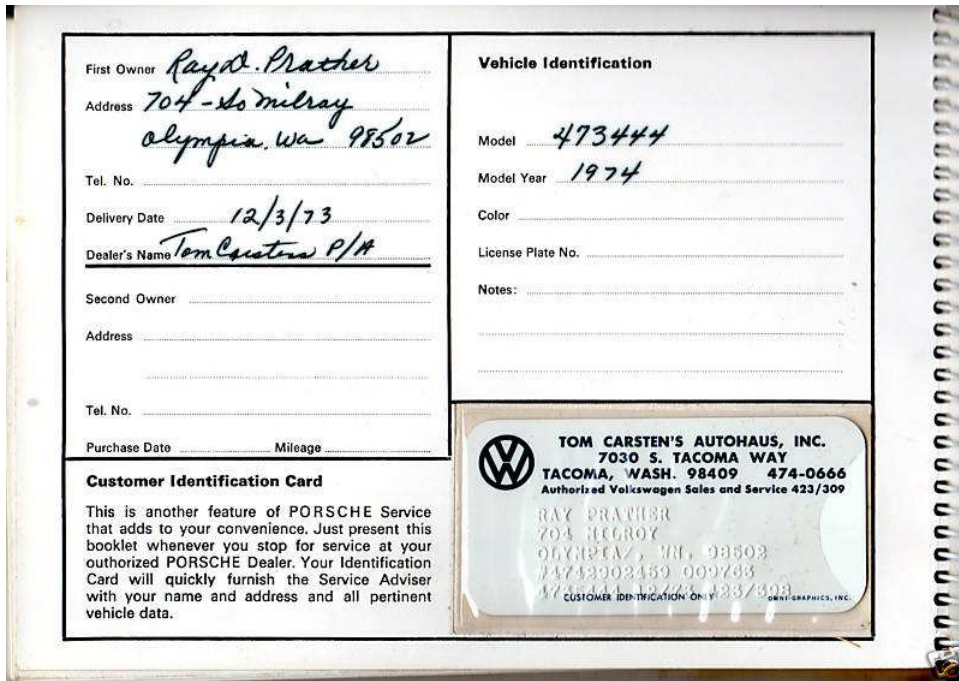 First Owner Ray D. Prather
Address 704 - So Milray
Olympia, Wa 98502
Tel. No.
Delivery Date 12/3/73
Dealer's Name Tom Carstens P/A
Second Owner
Address
Tel. No.
Purchase Date Mileage
Customer Identification Card
This is another feature of PORSCHE Service
that adds to your convenience. Just present this
booklet whenever you stop for service at your
outhorized PORSCHE Dealer. Your Identification
Card will quickly furnish the Service Adviser
with your name and address and all pertinent
vehicle data.
Vehicle Identification
Model 473444
Model Year 1974
Color
License Plate No.
Notes:
TOM CARSTEN'S AUTOHAUS, INC.
7030 S. TACOMA WAY
TACOMA, WASH. 98409 474-0666
Authorized Volkswagen Sales and Service 423/309
RAY PRATHER
704 MILROY
OLYMPIA/, WN. 98502
4742902459 009763
CUSTOMER IDENTIFICATION ONLY
OMNI-GRAPHICS, INC.